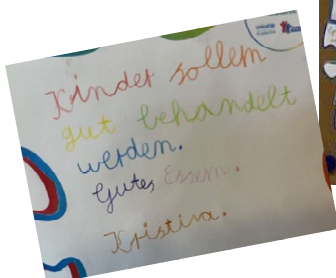 Kinder sollem
gut behandelt
werden.
Gutes Essem.
Kristina.